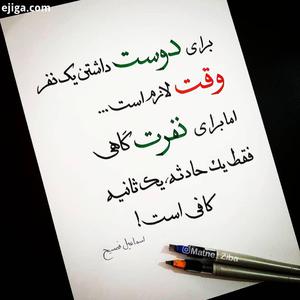 ejiga.com
برای دوست داشتن یک نفر
وقت لازم است...
اما برای نفرت گاهی
فقط یک حادثه، یک ثانیه
کافی است!
اسماعیل فصیح
@Matne_Ziba